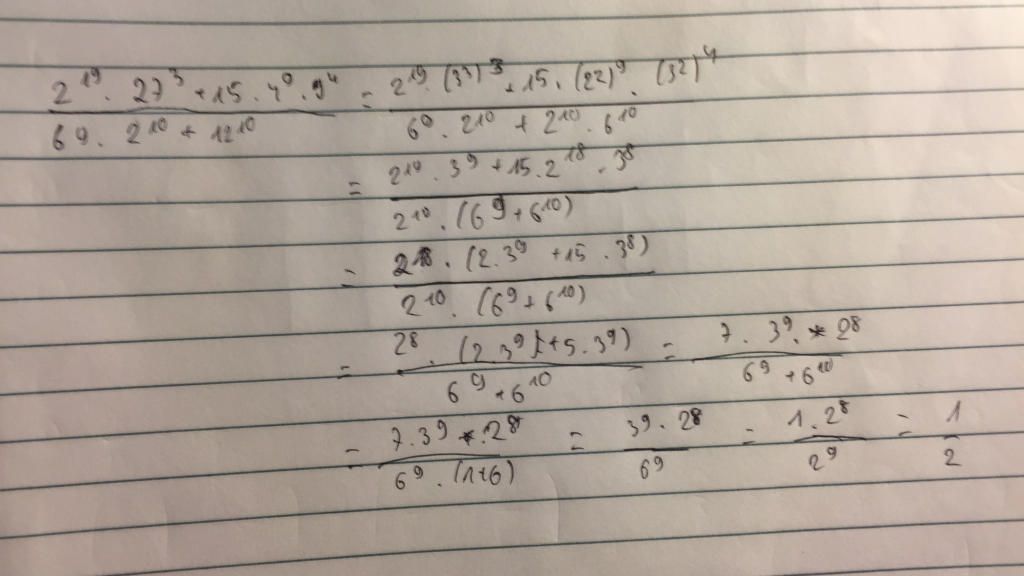 2¹⁹ · 27³ + 15 · 4⁹ · 9⁴ / 6⁹ · 2¹⁰ + 12¹⁰ = 2¹⁹ · (3³)³ + 15 · (2²)⁹ · (3²)⁴ / 6⁹ · 2¹⁰ + 2¹⁰ · 6¹⁰
= 2¹⁹ · 3⁹ + 15 · 2¹⁸ · 3⁸ / 2¹⁰ · (6⁹ + 6¹⁰)
= 2¹⁸ · (2 · 3⁹ + 15 · 3⁸) / 2¹⁰ · (6⁹ + 6¹⁰)
= 2⁸ · (2 · 3⁹ + 5 · 3⁹) / 6⁹ + 6¹⁰ = 7 · 3⁹ · 2⁸ / 6⁹ + 6¹⁰
= 7 · 3⁹ · 2⁸ / 6⁹ · (1+6) = 3⁹ · 2⁸ / 6⁹ = 1 · 2⁸ / 2⁹ = 1 / 2